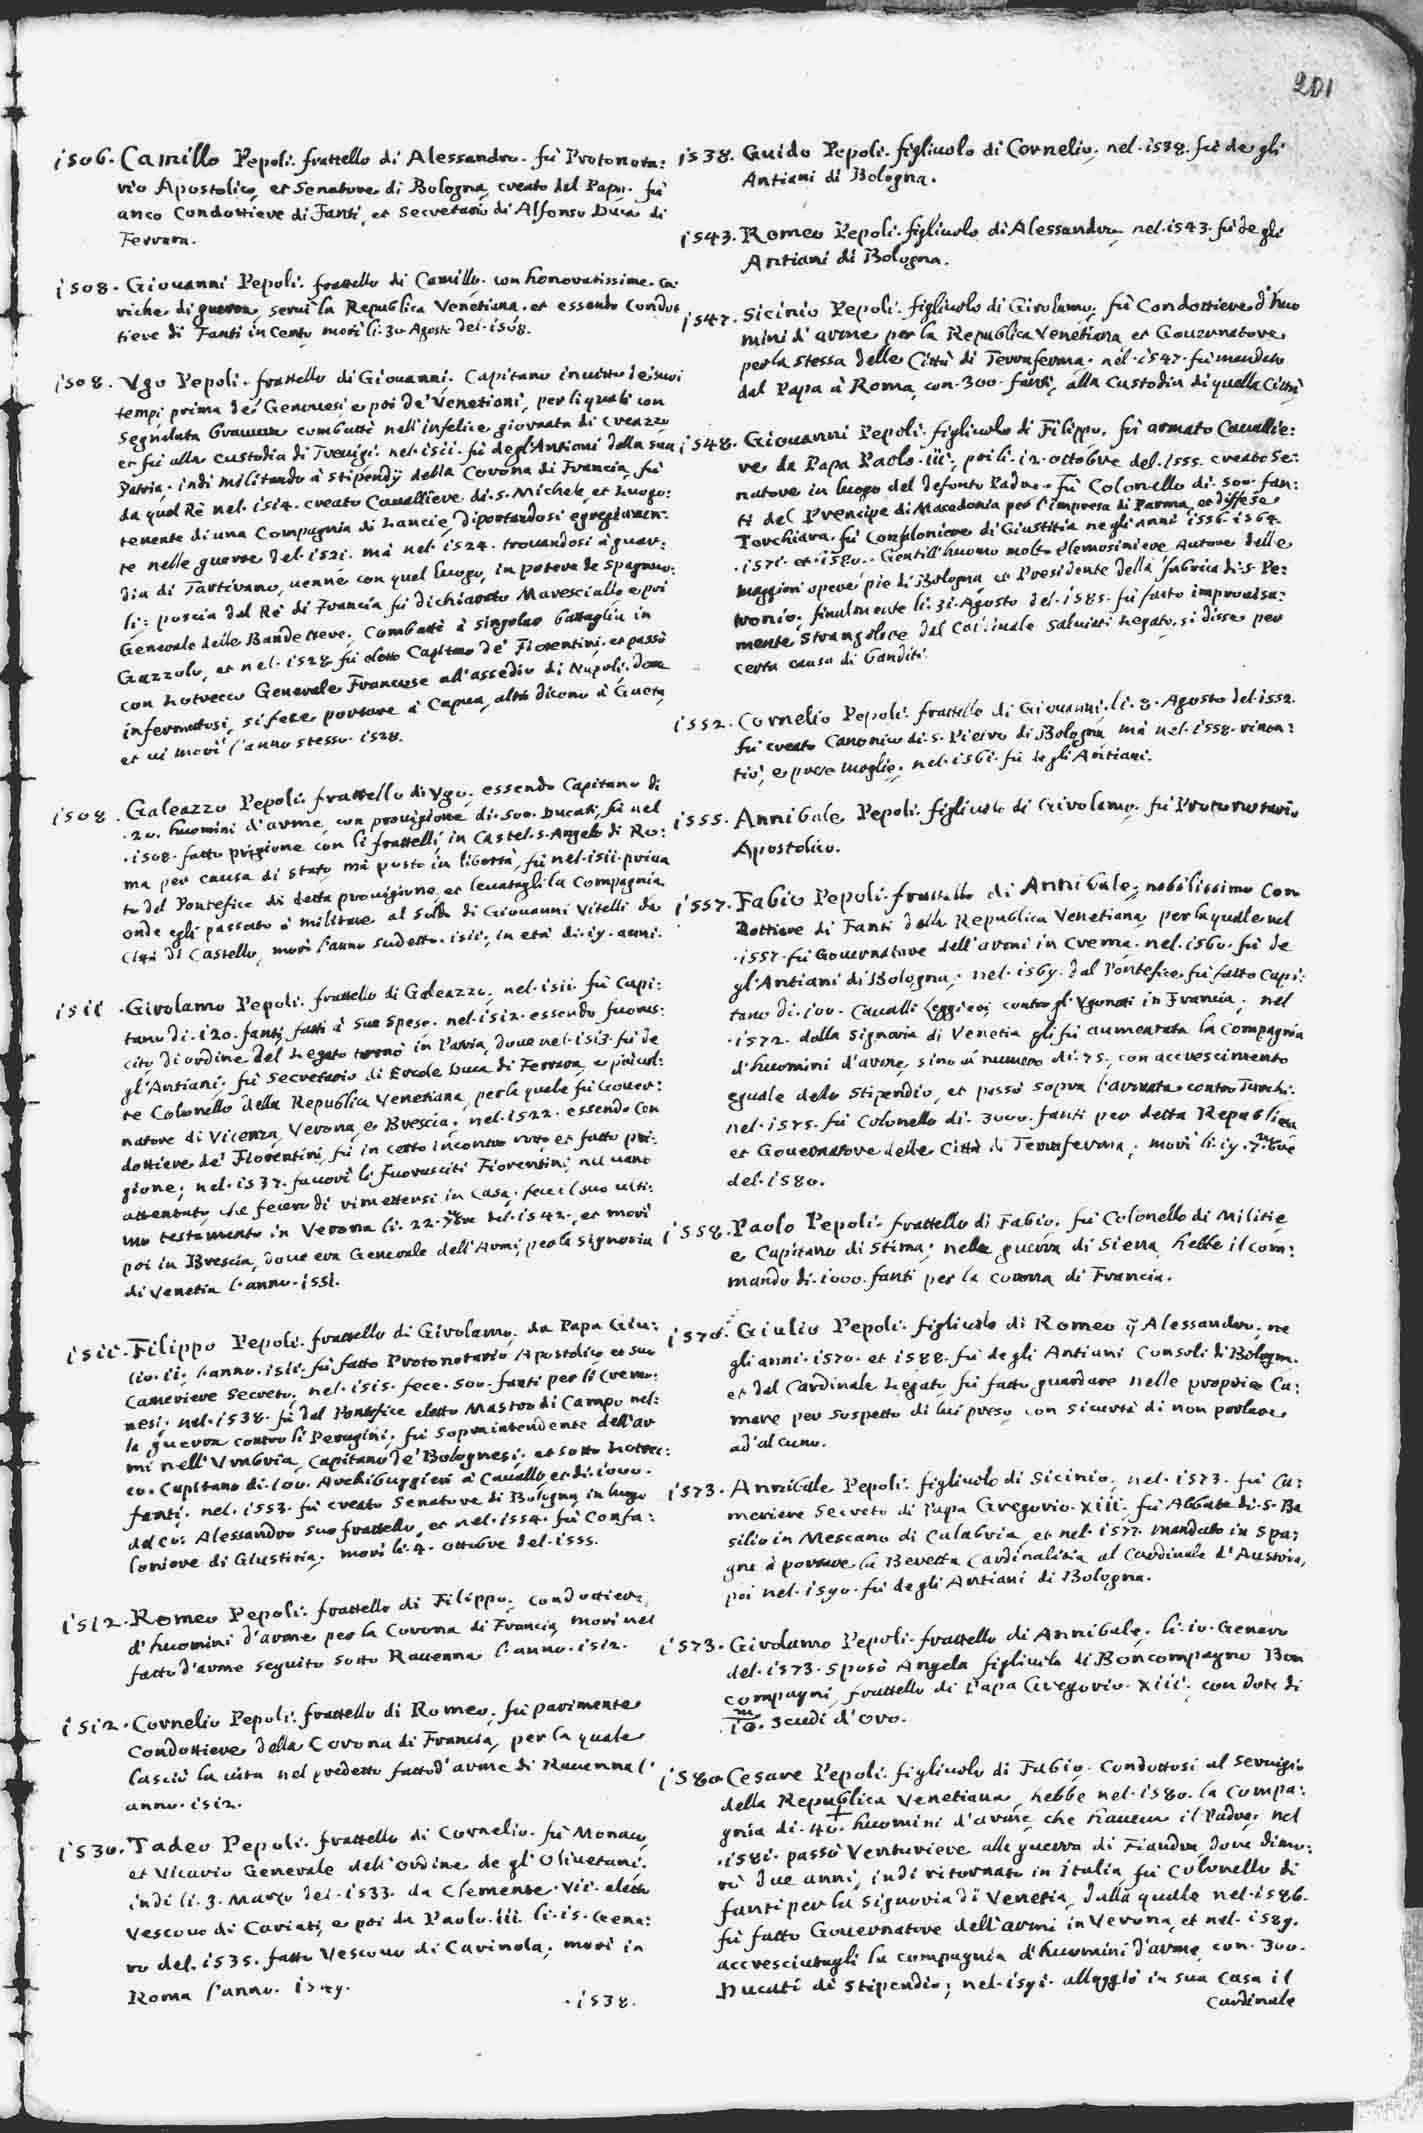 201
1506. Camillo Pepoli. frattello di Alessandro. fù Protonota:
rio Apostolico, et Senatore di Bologna, creato dal Papa. fù
anco Condottiere di Fanti, et Secretario di Alfonso Duca di
Ferrara.
1508. Giouanni Pepoli. frattello di Camillo. con honoratissime. Ca
riche di guerra, seruì la Republica Venetiana. et essendo Condot
tiere di Fanti in Cento morì li. 30. Agosto del. 1508.
1508. Vgo Pepoli. frattello di Giouanni. Capitano inuitto de suoi
tempi, prima de' Genouesi, e poi de' Venetiani, per li quali con
segnalata brauura combattè nell'infelice giornata di Creazzo
et fù alla custodia di Treuigi. nel. 1511. fù degl'Antiani della sua
Patria. indi militando à stipendÿ della Corona di Francia, fù
da quel Rè nel. 1514. creato Cauallieve di. S. Michele, et Luogo:
tenente di una Compagnia di Lancie, diportandosi egregiamen:
te nelle guerre del. 1521. mà nel. 1524. trouandosi à guar:
dia di, uenne con quel luogo, in potere de Spagnuo:
li: poscia dal Rè di Francia fù dichiarato Maresciallo, e poi
Generale delle Bande Nere; Combattè à singolar battaglia in
Gazzolo, et nel. 1528. fù eletto Capitano de' Fiorentini. et passò
con Lotrecco Generale Francese all'assedio di Napoli. doue
infermatosi, si fece portare à Capua, altri dicono à Gaeta,
et ui morì l'anno stesso. 1528.
1508. Galeazzo Pepoli. frattello di Vgo. essendo Capitano di
.20. huomini d'arme, con prouigione di. 500. Ducati, fù nel
.1508. fatto prigione con li frattelli, in Castel. S. Angelo di Ro:
ma per causa di stato, mà posto in libertà, fù nel. 1511. priua
to dal Pontefice di detta prouigione, et leuatagli la Compagnia.
onde egli passato à militare al soldo di Giouanni Vitelli da
Città di Castello, morì l'anno sudetto. 1511; in età di. 19. anni.
1511 .Girolamo Pepoli. frattello di Galeazzo; nel. 1511. fù Capi:
tano di. 120. fanti, fatti à sue spese. nel. 1512. essendo fuorus:
cito di ordine del Legato tornò in Patria, doue nel. 1513. fù de
gl'Antiani. fù Secretario di Ercole Duca di Ferrara, e più uol:
te Colonello della Republica Venetiana, per la quale fù Gouer:
natore di Vicenza, Verona, e Brescia. nel. 1522. essendo Con
dottiere de' Fiorentini, fù in certo incontro rotto et fatto pri:
gione; nel. 1537. fauorì li Fuorusciti Fiorentini, nel uano
attentato, che fecero di rimettersi in Casa. fece il suo ulti:
mo testamento in Verona li. 22. del. 1542., et morì
poi in Brescia, doue era Generale dell'Armi per la Signoria
di Venetia l'anno. 1551.
1511. Filippo Pepoli. frattello di Girolamo. da Papa Giu:
lio. ii. l'anno. 1511. fù fatto Protonotario Apostolico et suo
Cameriere Secreto; nel. 1515. fece. 500. fanti per li Cremo:
nesi; nel. 1538. fù dal Pontefice eletto Mastro di Campo nel:
la guerra contro li Perugini; fù Sopraintendente dell'ar
mi nell'Vmbria, Capitano de' Bolognesi; et sotto Lotrec:
co. Capitano di. 100. Archibuggieri à Cauallo, et di. 1000.
fanti. nel. 1553. fù creato Senatore di Bologna in luogo
del Co: Alessandro suo frattello, et nel. 1554. fù Confa:
loniere di Giustitia; morì li. 4. ottobre del. 1555.
1512. Romeo Pepoli. frattello di Filippo. condottiere
d'huomini d'arme per la Corona di Francia, morì nel
fatto d'arme seguito sotto Rauenna l'anno. 1512.
1512. Cornelio Pepoli. frattello di Romeo, fù parimente
Condottiere della Corona di Francia, per la quale
lasciò la uita nel predetto fatto d'arme di Rauenna l'
anno. 1512.
1530. Tadeo Pepoli. frattello di Cornelio. fù Monaco,
et Vicario Generale dell'ordine de gl'Oliuetani.
indi li. 3. Marzo del. 1533. da Clemente. vii. eletto
Vescouo di Cariati, e poi da Paolo. iii. li. 15. Gena:
ro del. 1535. fatto Vescouo di Carinola; morì in
Roma l'anno. 1549.
.1538.
1538. Guido Pepoli. figliuolo di Cornelio. nel. 1538. fù de gli
Antiani di Bologna.
1543. Romeo Pepoli. figliuolo di Alessandro, nel. 1543. fù de gli
Antiani di Bologna.
1547. Sicinio Pepoli. figliuolo di Girolamo; fù Condottiere d'huo
mini d'arme per la Republica Venetiana et Gouernatore
per la stessa delle Città di Terraferma. nel. 1547. fù mandato
dal Papa à Roma, con. 300. fanti, alla custodia di quella Città
1548. Giouanni Pepoli. figliuolo di Filippo, fù armato Cauallie:
re da Papa Paolo. iii; poi li. 12. ottobre del. 1555. creato Se:
natore in luogo del defonto Padre. fù Colonello di. 500. fan:
ti del Prencipe di Macedonia per l'impresa di Parma, et diffese
Torchiara. fù Confaloniere di Giustitia negli anni 1556. 1564.
.1571. et. 1580. Gentill'huomo molto elemosiniere, Autore delle
maggiori opere pie di Bologna, et Presidente della fabrica di. S. Pe:
tronio; finalmente li. 31. Agosto del. 1585. fù fatto improuisa:
mente strangolare dal Cardinale Saluiati Legato, si disse per
certa causa di banditi.
1552. Cornelio Pepoli. frattello di Giouanni. li. 8. Agosto del. 1552.
fù creato Canonico di. S. Pietro di Bologna, mà nel. 1558. rinon:
tiò, e prese moglie. nel. 1561. fù degli Antiani.
1555. Annibale Pepoli. figliuolo di Girolamo. fù Protonotario
Apostolico.
1557. Fabio Pepoli. frattello di Annibale; nobilissimo Con
dottiere di Fanti della Republica Venetiana, per la quale nel
.1557. fù Gouernatore dell'armi in Crema. nel. 1560. fù de
gl'Antiani di Bologna; nel. 1569. dal Pontefice fù fatto Capi:
tano di. 100. Caualli Leggieri, contro gl'Vgonoti in Francia; nel
.1572. dalla Signoria di Venetia gli fù aumentata la Compagnia
d'huomini d'arme, sino al numero di. 75, con accrescimento
eguale dello stipendio, et passò sopra l'armata contro Turchi.
nel. 1575. fù Colonello di. 3000. fanti per detta Republica,
et Gouernatore delle Città di Terraferma; morì li. 19. 7.mbre
del. 1580.
1558. Paolo Pepoli. frattello di Fabio. fù Colonello di Militie,
e Capitano di stima; nella guerra di Siena, hebbe il com:
mando di. 1000. fanti per la Corona di Francia.
1570. Giulio Pepoli. figliuolo di Romeo q Alessandro; ne
gli anni. 1570. et 1588. fù de gli Antiani Consoli di Bologna.
et dal Cardinale Legato, fù fatto guardare nelle proprie Ca:
mare per sospetto di lui preso, con sicurtà di non parlare
ad'alcuno.
1573. Annibale Pepoli. figliuolo di Sicinio; nel. 1573. fù Ca:
meriere Secreto di Papa Gregorio. xiii; fù Abbate di. S. Ba
silio in Mescano di Calabria, et nel. 1577. mandato in Spa:
gna à portare la Beretta Cardinalitia al Cardinale d'Austria,
poi nel. 1590. fù degli Antiani di Bologna.
1573. Girolamo Pepoli. frattello di Annibale. li. 10. Genaro
del. 1573. sposò Angela figliuola di Boncompagno Bon
compagni, frattello di Papa Gregorio. xiii; con dote di
10.m scudi d'oro.
1580. Cesare Pepoli. figliuolo di Fabio. Condottosi al seruigio
della Republica Venetiana, hebbe nel. 1580. la Compa:
gnia di. 40. huomini d'arme, che haueua il Padre. nel
.1581. passò Venturiere alla guerra di Fiandra, doue dimo:
rò due anni; indi ritornato in Italia, fù Colonello di
fanti per la Signoria di Venetia, dalla quale nel. 1586.
fù fatto Gouernatore dell'armi in Verona, et nel. 1589.
accresciutagli la compagnia d'huomini d'arme, con. 300.
Ducati di stipendio; nel. 1591. alloggiò in sua Casa il
Cardinale